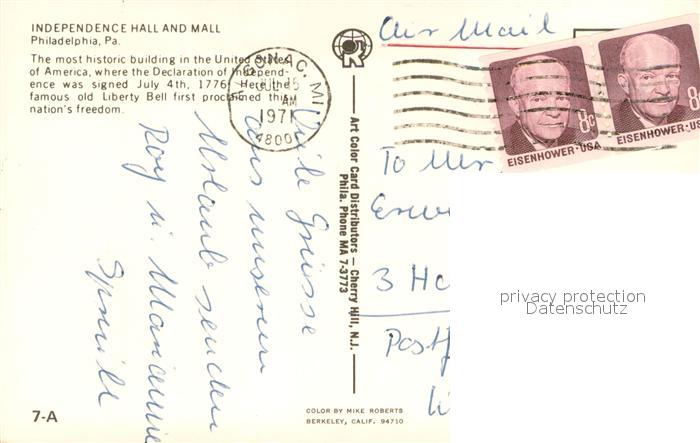 INDEPENDENCE HALL AND MALL
Philadelphia, Pa.
The most historic building in the United States
of America, where the Declaration of Independ-
ence was signed July 4th, 1776. Here the
famous old Liberty Bell first proclaimed this
nation's freedom.
ALGONAC, MI
JUL 15
AM
1971
48001
Air Mail
8c
EISENHOWER·USA
8c
EISENHOWER·US
Art Color Card Distributors — Cherry Hill, N.J.
Phila. Phone MA 7-3773
Viele Grüsse
aus unserem
Urlaub senden
Roy u. Marianne
To Mr
3 Ha
Postf
privacy protection
Datenschutz
7-A
COLOR BY MIKE ROBERTS
BERKELEY, CALIF. 94710